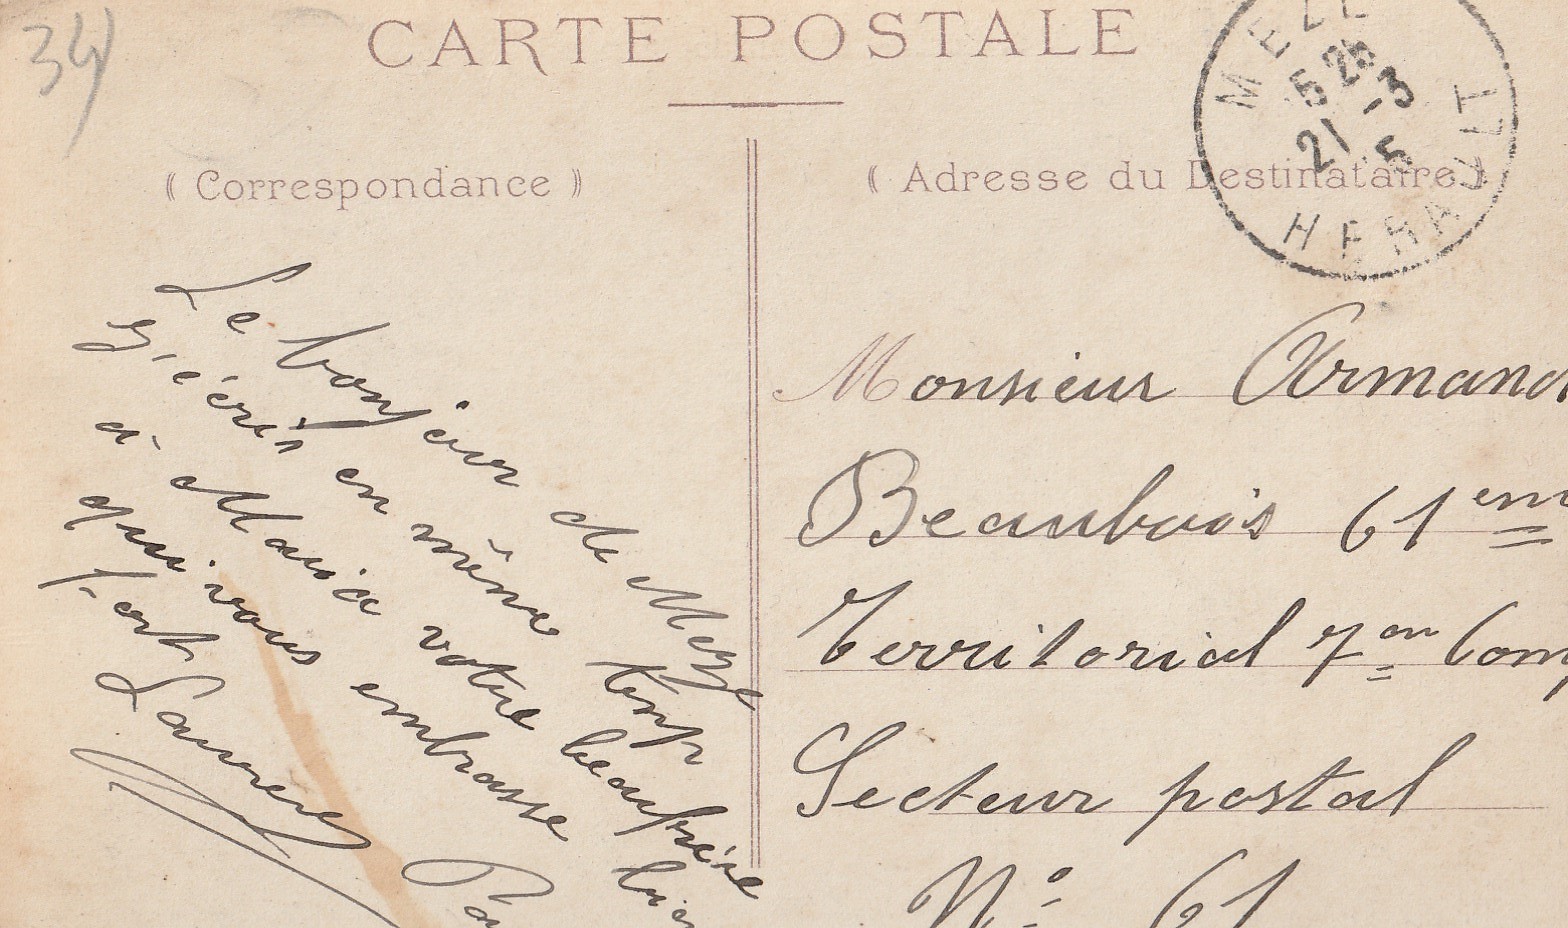 34
CARTE POSTALE
MEZE
5 25
21 -3
5
HERAULT
( Correspondance )
( Adresse du Destinataire )
Le bonjour de Meze
J'écris en même temp
à Maria votre beaufrère
qui vous embrasse bien
fort
Laurens
Monsieur Armand
Beaubois 61em
Territorial 7em Comp
Secteur postal
No 61